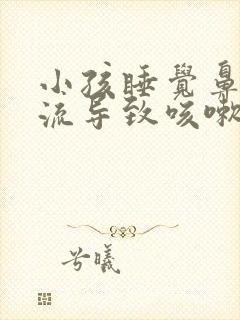 小孩睡覺鼻
流导致咳嗽
兮曦